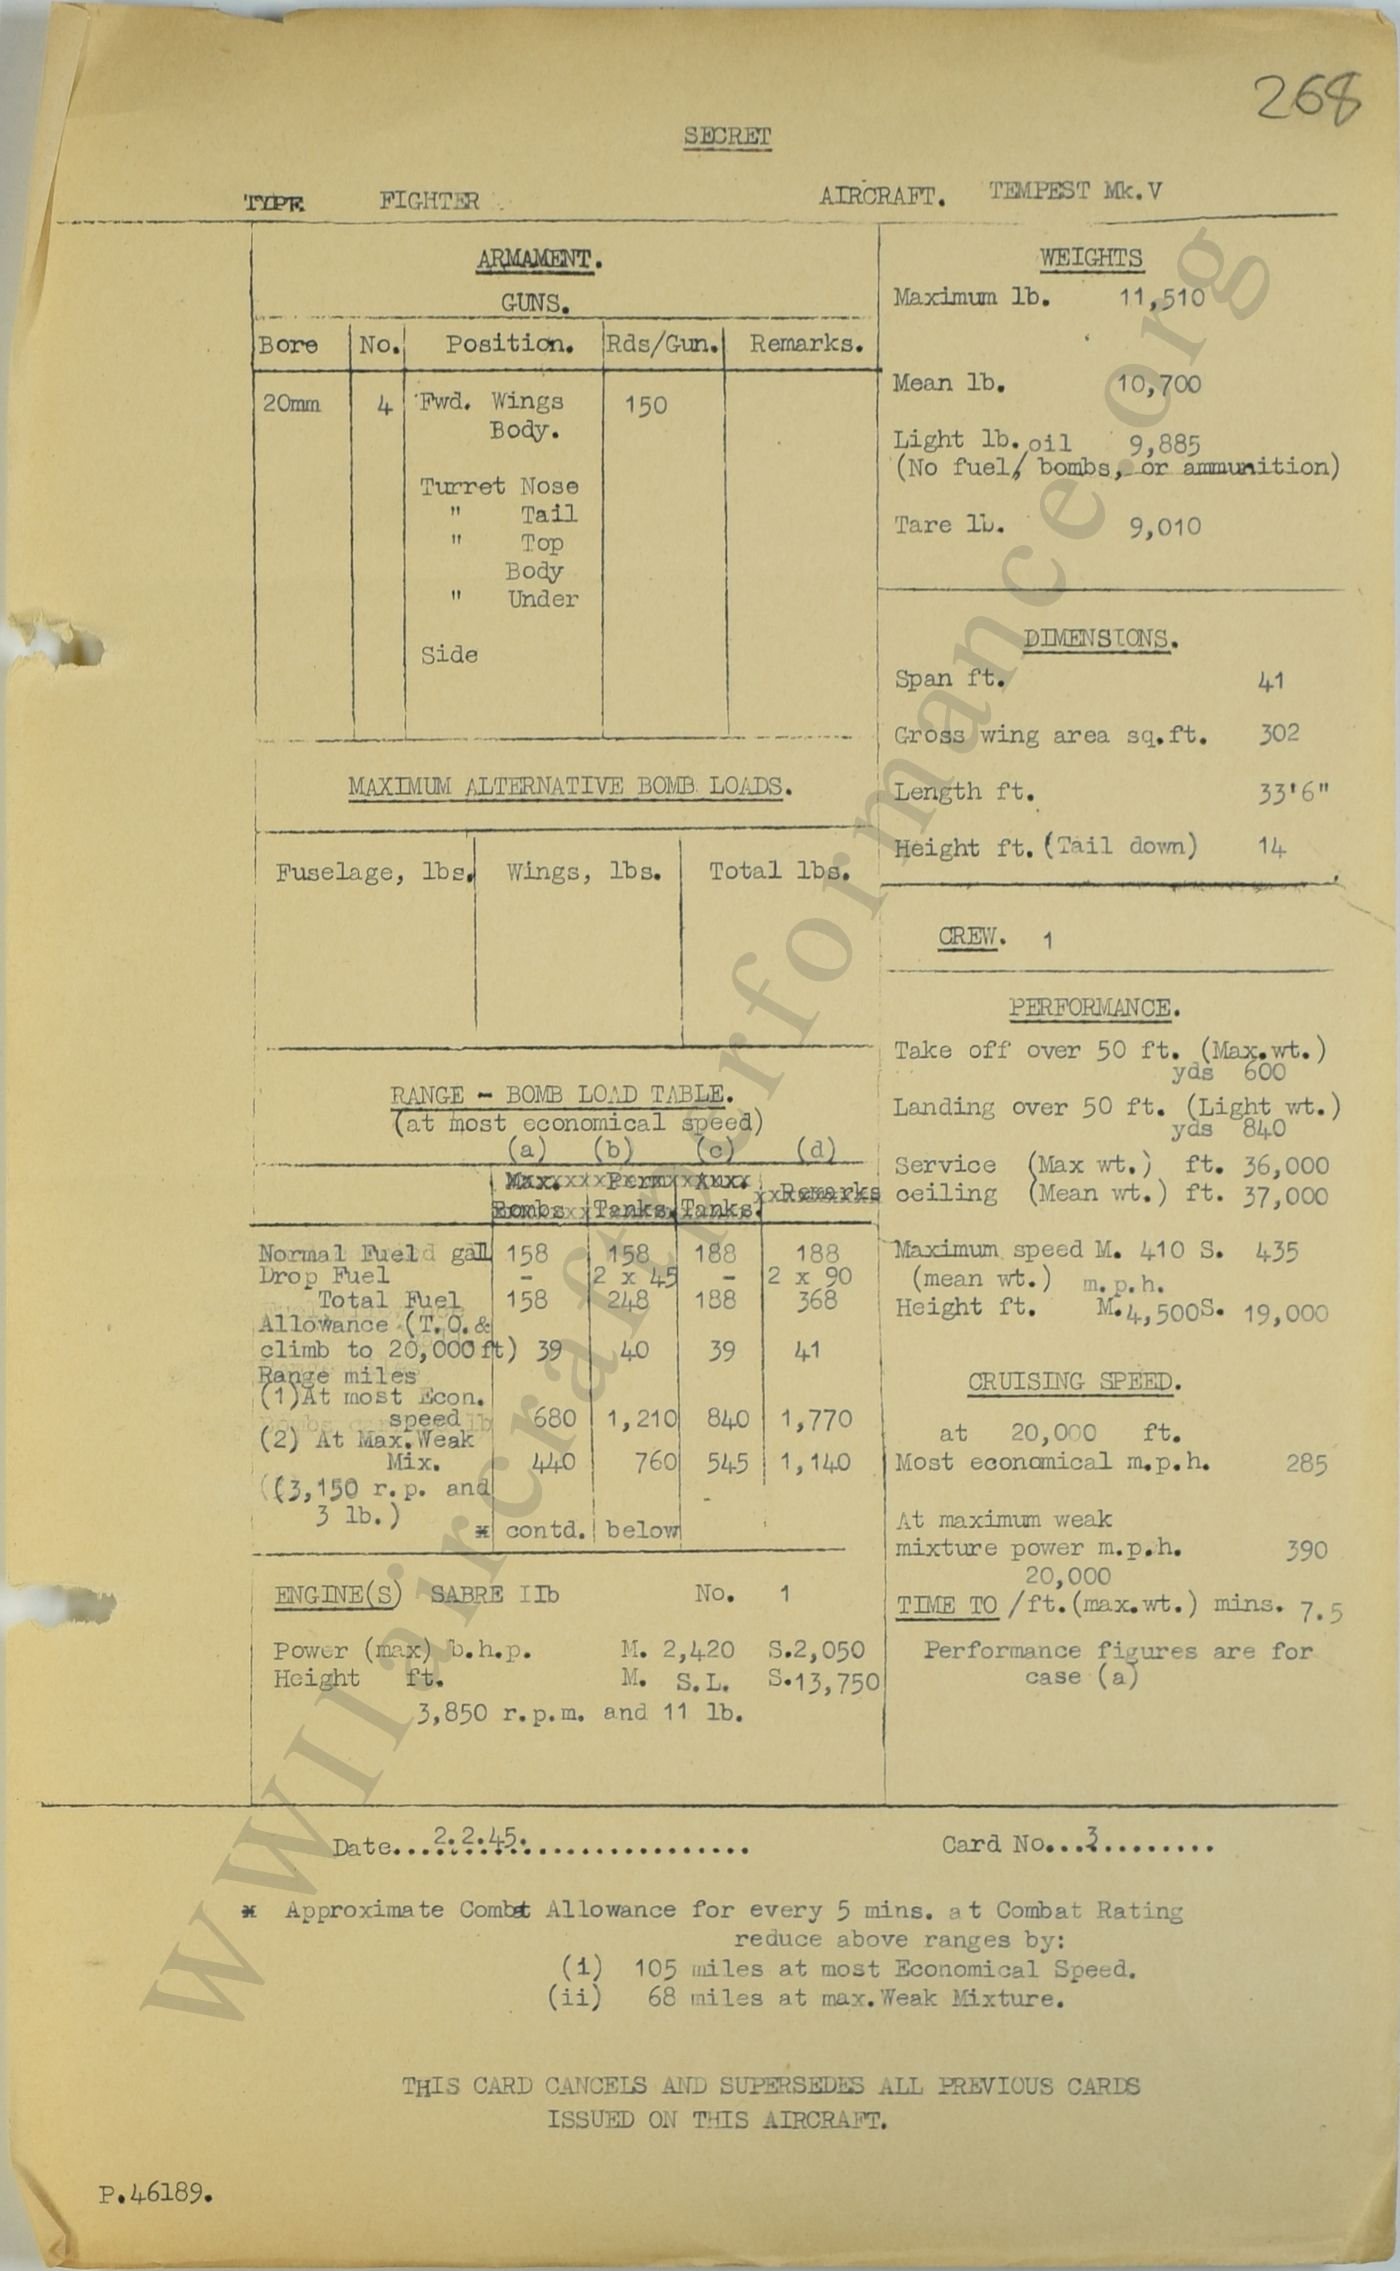 268
SECRET
TYPE FIGHTER AIRCRAFT. TEMPEST Mk.V
ARMAMENT.
GUNS.
Bore No. Position. Rds/Gun. Remarks.
20mm 4 Fwd. Wings 150
Body.
Turret Nose
" Tail
" Top
Body
" Under
Side
MAXIMUM ALTERNATIVE BOMB LOADS.
Fuselage, lbs. Wings, lbs. Total lbs.
RANGE - BOMB LOAD TABLE.
(at most economical speed)
(a) (b) (c) (d)
Max. Perm Aux. Remarks
Bombs Tanks. Tanks.
Normal Fuel gall 158 158 188 188
Drop Fuel - 2 x 45 - 2 x 90
Total Fuel 158 248 188 368
Allowance (T.O.&
climb to 20,000 ft) 39 40 39 41
Range miles
(1)At most Econ.
speed 680 1,210 840 1,770
(2) At Max.Weak
Mix. 440 760 545 1,140
((3,150 r.p. and
3 lb.)
* contd. below
ENGINE(S) SABRE IIb No. 1
Power (max) b.h.p. M. 2,420 S.2,050
Height ft. M. S.L. S.13,750
3,850 r.p.m. and 11 lb.
WEIGHTS
Maximum lb. 11,510
Mean lb. 10,700
Light lb. 9,885
oil
(No fuel/ bombs, or ammunition)
Tare lb. 9,010
DIMENSIONS.
Span ft. 41
Gross wing area sq.ft. 302
Length ft. 33'6"
Height ft.(Tail down) 14
CREW. 1
PERFORMANCE.
Take off over 50 ft. (Max.wt.)
yds 600
Landing over 50 ft. (Light wt.)
yds 840
Service (Max wt.) ft. 36,000
ceiling (Mean wt.) ft. 37,000
Maximum speed M. 410 S. 435
(mean wt.) m.p.h.
Height ft. M.4,500S. 19,000
CRUISING SPEED.
at 20,000 ft.
Most economical m.p.h. 285
At maximum weak
mixture power m.p.h. 390
20,000
TIME TO /ft.(max.wt.) mins. 7.5
Performance figures are for
case (a)
Date...2.2.45............................
Card No...3.........
* Approximate Combat Allowance for every 5 mins. at Combat Rating
reduce above ranges by:
(i) 105 miles at most Economical Speed.
(ii) 68 miles at max.Weak Mixture.
THIS CARD CANCELS AND SUPERSEDES ALL PREVIOUS CARDS
ISSUED ON THIS AIRCRAFT.
P.46189.
WWIIaircraftperformance.org